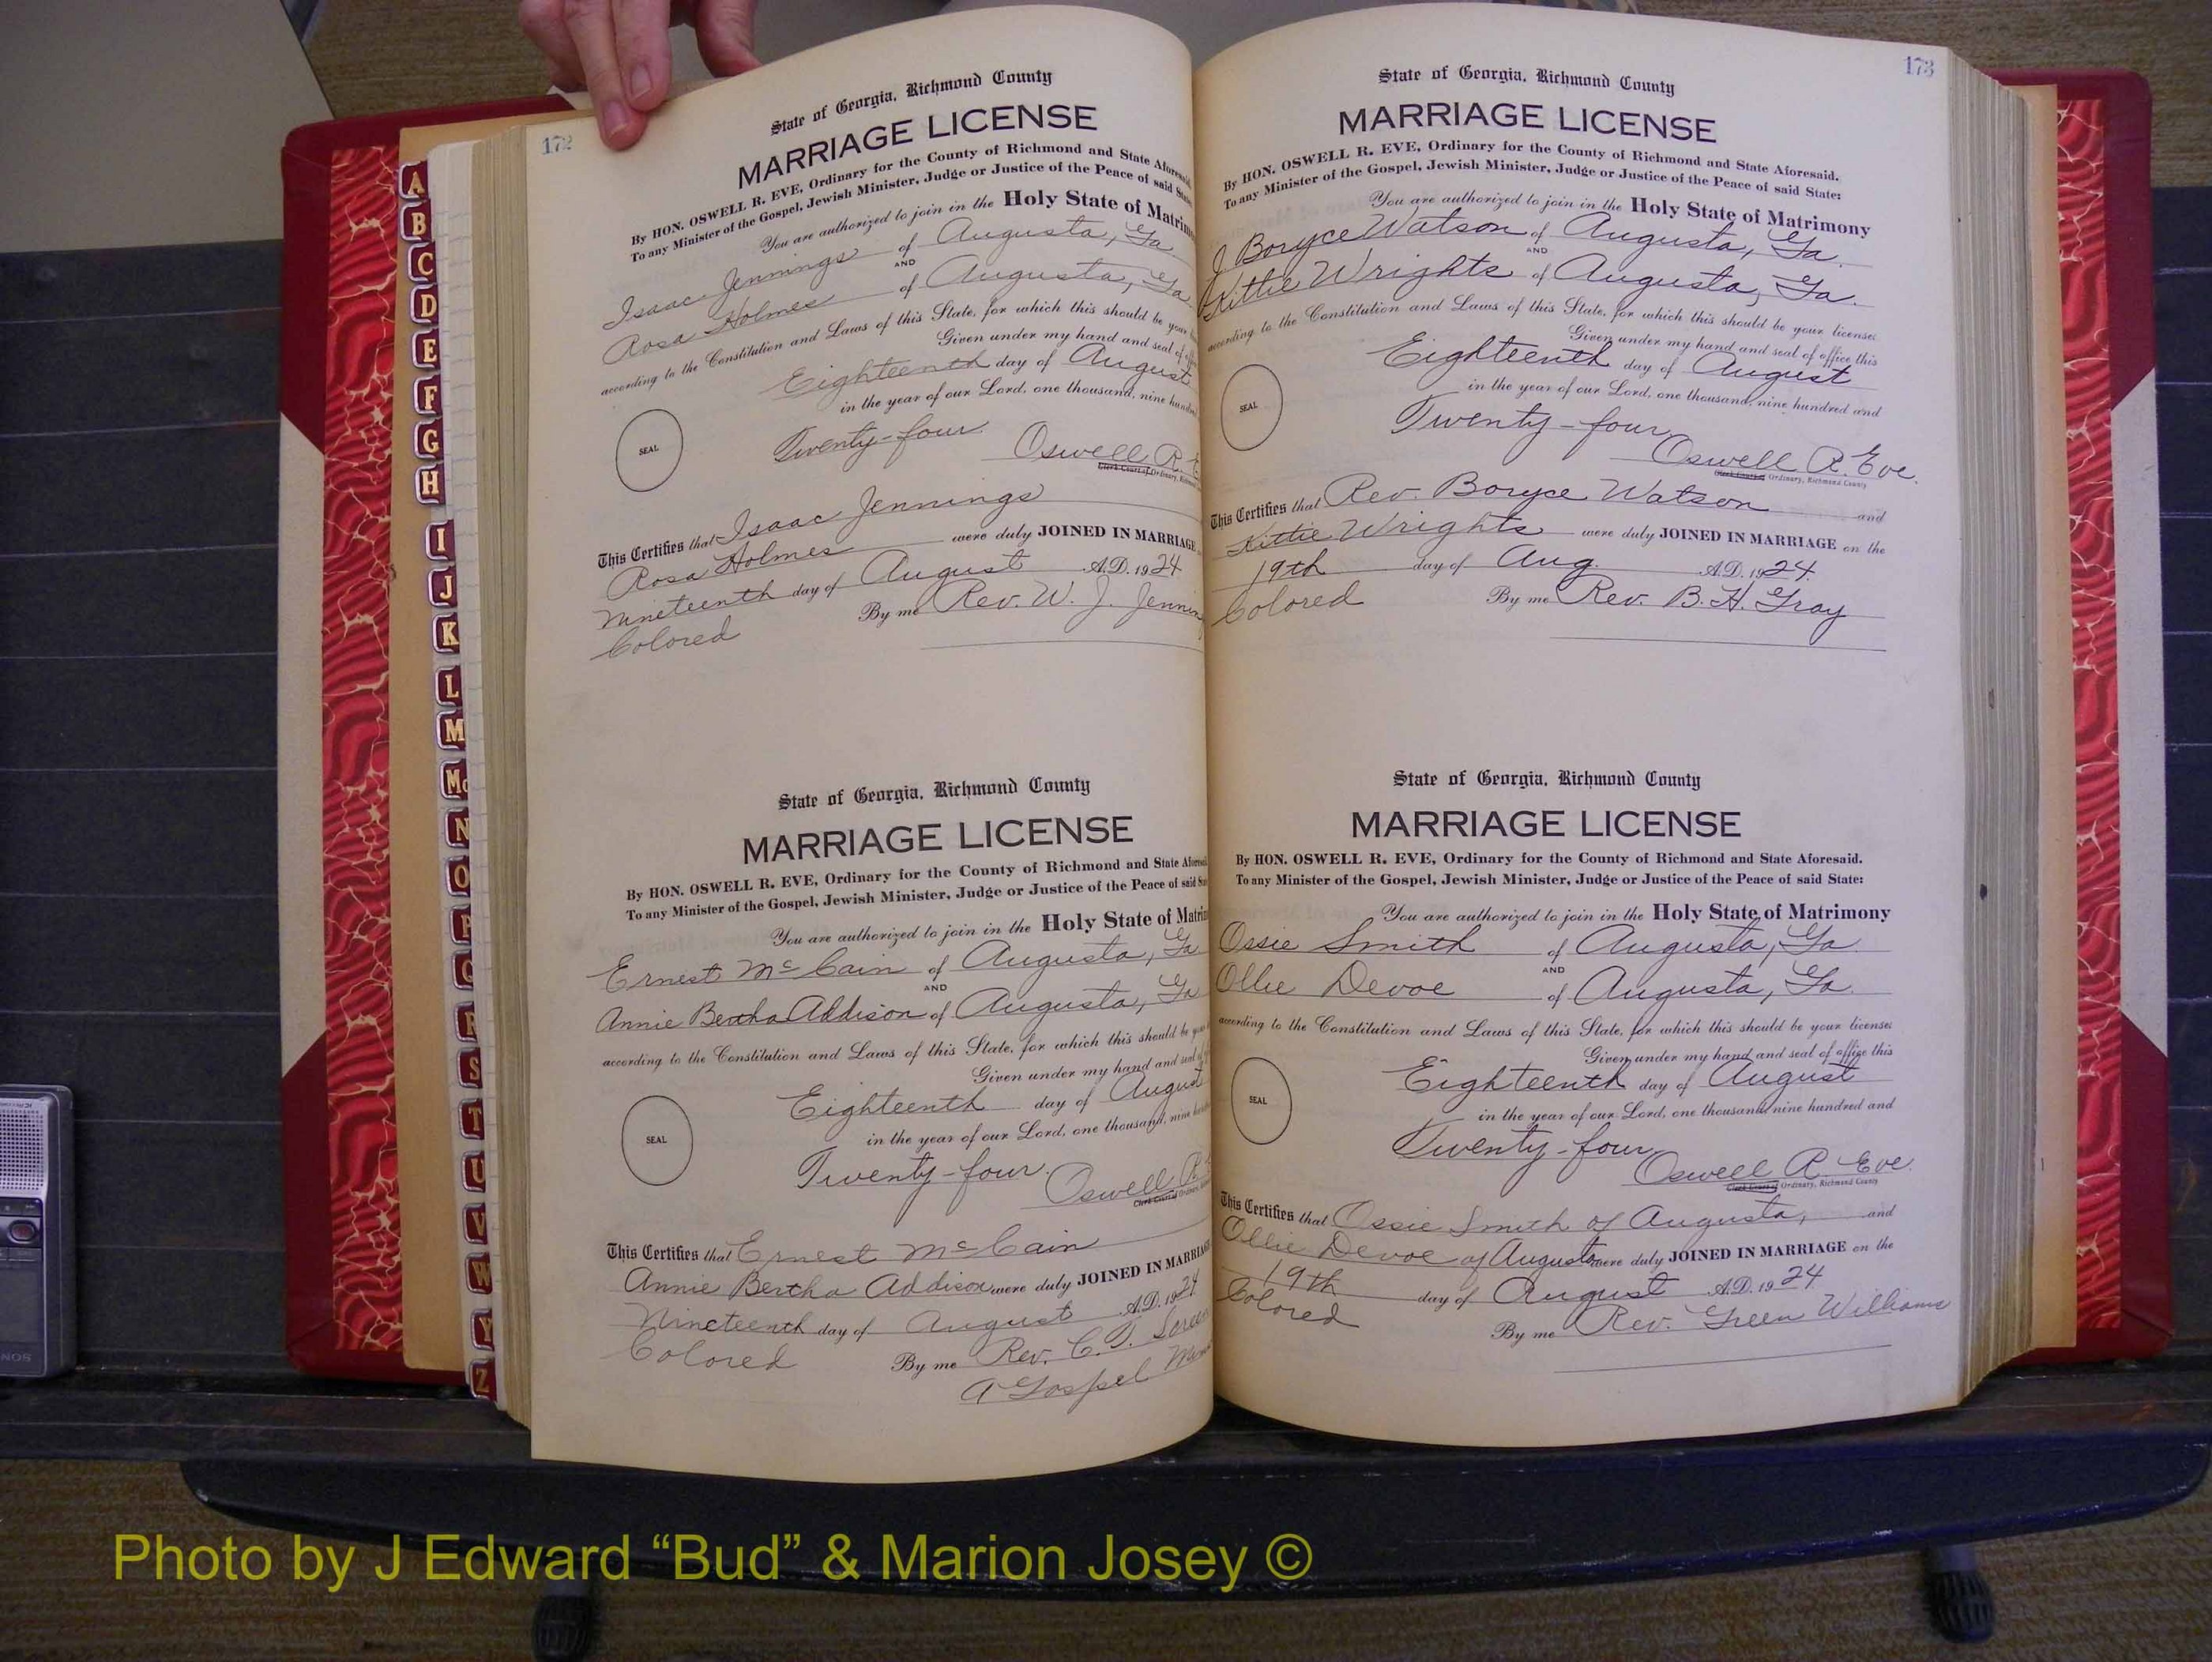 172
State of Georgia, Richmond County
MARRIAGE LICENSE
By HON. OSWELL R. EVE, Ordinary for the County of Richmond and State Aforesaid.
To any Minister of the Gospel, Jewish Minister, Judge or Justice of the Peace of said State:
You are authorized to join in the Holy State of Matrim
Isaac Jennings of Augusta, Ga.
AND
Rosa Holmes of Augusta, Ga.
according to the Constitution and Laws of this State, for which this should be your
Given under my hand and seal of
Eighteenth day of August
in the year of our Lord, one thousand, nine hundred
Twenty-four
SEAL
Oswell R. E
Clerk Court of Ordinary,
This Certifies that Isaac Jennings
Rosa Holmes were duly JOINED IN MARRIAGE
Nineteenth day of August A.D. 1924
Colored By me Rev. W. J. Jennin
State of Georgia, Richmond County
MARRIAGE LICENSE
By HON. OSWELL R. EVE, Ordinary for the County of Richmond and State Afores
To any Minister of the Gospel, Jewish Minister, Judge or Justice of the Peace of said
You are authorized to join in the Holy State of Matri
Ernest McCain of Augusta, Ga
AND
Annie Bertha Addison of Augusta, Ga
according to the Constitution and Laws of this State, for which this should be
Given under my hand and seal
Eighteenth day of August
in the year of our Lord, one thousand, nine
Twenty-four.
SEAL
Oswell R.
Clerk Court of Ordinary,
This Certifies that Ernest McCain
Annie Bertha Addison were duly JOINED IN MARRIAGE
Nineteenth day of August A.D. 1924
Colored By me Rev. C. T.
A Gospel
173
State of Georgia, Richmond County
MARRIAGE LICENSE
By HON. OSWELL R. EVE, Ordinary for the County of Richmond and State Aforesaid.
To any Minister of the Gospel, Jewish Minister, Judge or Justice of the Peace of said State:
You are authorized to join in the Holy State of Matrimony
J Boryce Watson of Augusta, Ga.
AND
Kittie Wrights of Augusta, Ga.
according to the Constitution and Laws of this State, for which this should be your license:
Given under my hand and seal of office this
Eighteenth day of August
in the year of our Lord, one thousand, nine hundred and
Twenty-four
SEAL
Oswell R. Eve.
Clerk Court of Ordinary, Richmond County
This Certifies that Rev. Boryce Watson and
Kittie Wrights were duly JOINED IN MARRIAGE on the
19th day of Aug. A.D. 1924.
Colored By me Rev. B. H. Gray
State of Georgia, Richmond County
MARRIAGE LICENSE
By HON. OSWELL R. EVE, Ordinary for the County of Richmond and State Aforesaid.
To any Minister of the Gospel, Jewish Minister, Judge or Justice of the Peace of said State:
You are authorized to join in the Holy State of Matrimony
Ossie Smith of Augusta, Ga.
AND
Ollie Devoe of Augusta, Ga.
according to the Constitution and Laws of this State, for which this should be your license:
Given under my hand and seal of office this
Eighteenth day of August
in the year of our Lord, one thousand, nine hundred and
Twenty-four
SEAL
Oswell R. Eve.
Clerk Court of Ordinary, Richmond County
This Certifies that Ossie Smith of Augusta, and
Ollie Devoe of Augusta were duly JOINED IN MARRIAGE on the
19th day of August A.D. 1924
Colored By me Rev. Green Williams
A
B
C
D
E
F
G
H
I
J
K
L
M
Mc
N
O
P
Q
R
S
T
U
V
W
Y
Z
Photo by J Edward “Bud” & Marion Josey ©